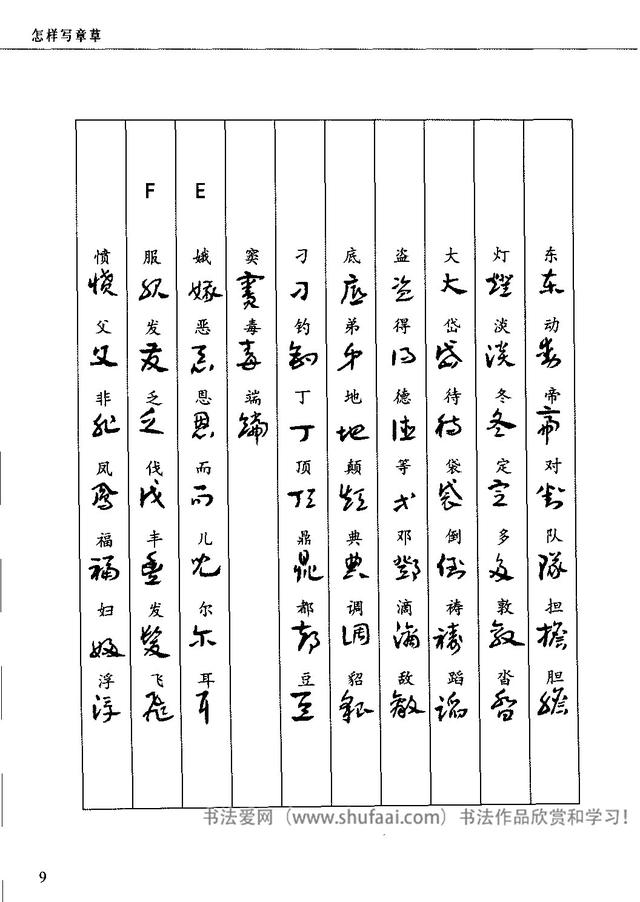 怎样写章草
东动帝对队担胆
灯淡冬定多敦沓
大岱待袋倒祷蹈
盗得德等邓滴敌
底弟地颠典调貂
刁钓丁顶鼎都豆
窦毒端
E
娥恶恩而儿尔耳
F
服发乏伐丰发飞
愤父非凤福妇浮
书法爱网（www.shufaai.com）书法作品欣赏和学习！
9